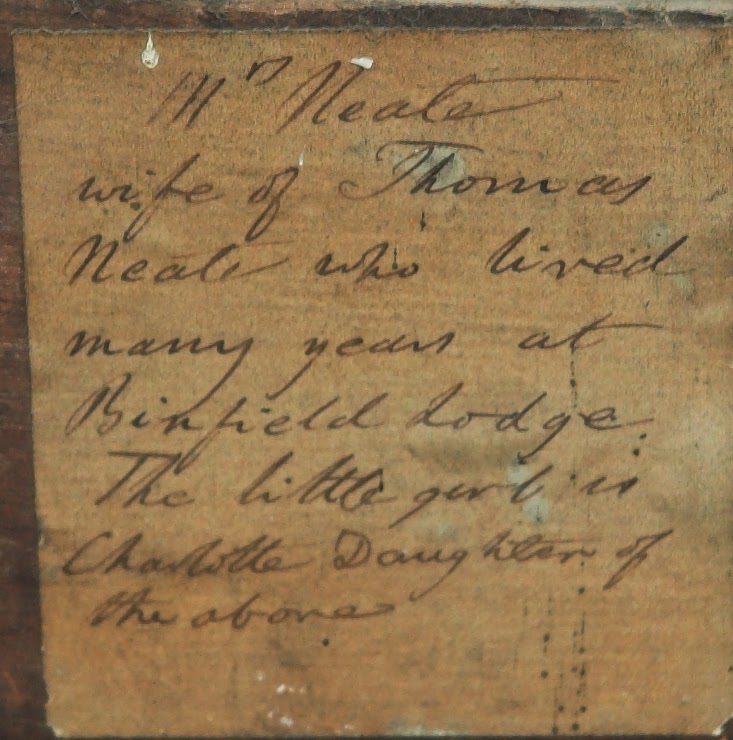 Mrs Neate
wife of Thomas
Neate who lived
many years at
Binfield Lodge.
The little girl is
Charlotte Daughter of
the above